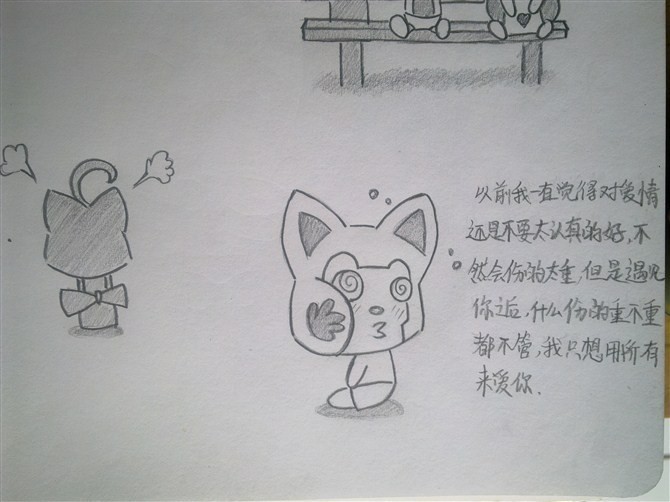 以前我一直觉得对爱情
还是不要太认真的好,不
然会伤的太重,但是遇见
你之后,什么伤的重不重
都不管,我只想用所有
来爱你.